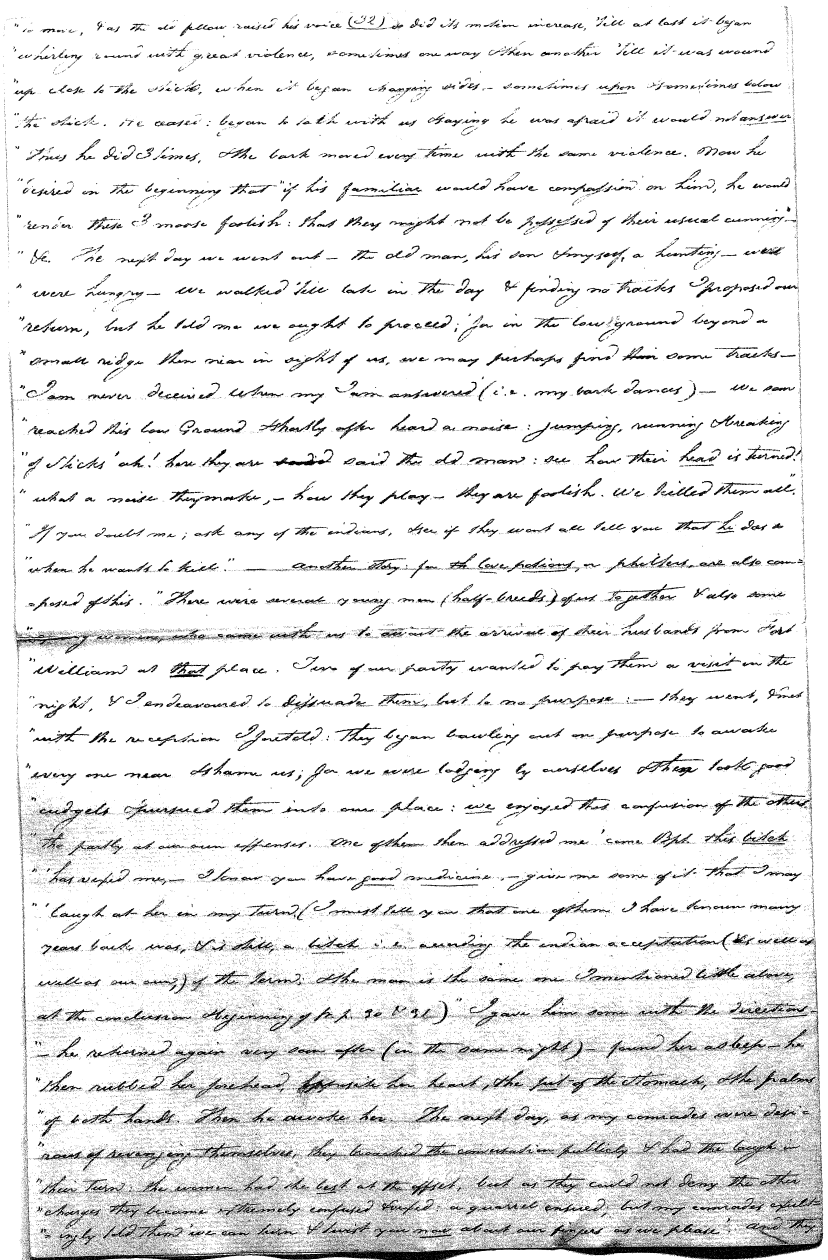 "to move, & as the old fellow raised his voice (32) so did its motion increase, 'till at last it began
"whirling round with great violence, sometimes one way & then another 'till it was wound
"up close to the stick, when it began changing sides, - sometimes upon & sometimes below
"the stick. He ceased: began to talk with us saying he was afraid it would not answer
"Thus he did 3 times, & the bark moved every time with the same violence. Now he
"desired in the beginning that "if his familiar would have compassion on him, he would
"render these 3 moose foolish: that they might not be possessed of their usual cunning" -
"&c. The next day we went out - the old man, his son & myself, a hunting - we
"were hungry - We walked 'till late in the day & finding no tracks I proposed our
"return, but he told me we ought to proceed; 'for in the low ground beyond a
"small ridge then near in sight of us, we may perhaps find some tracks -
"I am never deceived when my I am answered (i.e. my bark dances) - We soon
"reached this low Ground & shortly after heard a noise: jumping, running & breaking
"of Sticks 'ah! here they are said the old man: see how their head is turned!
"what a noise they make, - how they play - they are foolish. We killed them all".
"If you doubt me; ask any of the indians, & see if they wont all tell you that he does so
"when he wants to kill." - another story: for love potions, or philters, are also com=
=posed of this. "There were several young men (half-breeds) of us together & also some
women, who came with us to await the arrival of their husbands from Fort
"William at that place. Two of our party wanted to pay them a visit in the
"night, & I endeavoured to dissuade them, but to no purpose: - they went, & met
"with the reception I foretold: They began bawling out on purpose to awake
"every one near & shame us; for we were lodging by ourselves & then took good
"cudgels & pursued them into our place: we enjoyed this confusion of the others
"tho' partly at our own expenses. One of them then addressed me 'come Bpt. this bitch
"'has vexed me, - I know you have good medicine, - give me some of it that I may
"'laugh at her in my turn, (I must tell you that one of them I have known many
years back was, & is still, a bitch i.e. according the indian acceptation (as well as
well as our own,) of the term; & the man is the same one I mentioned little above,
at the conclusion & beginning of p.p. 30 & 31)" I gave him some with the directions -
"- he returned again very soon after (in the same night) - found her asleep - he
"then rubbed her forehead, opposite her heart, the pit of the stomach, & the palms
"of both hands. Then he awoke her. The next day, as my comrades were desi=
"rous of revenging themselves, they broached the conversation publicly & had the laugh in
"their turn: the women had the best at the offset, but as they could not deny the other
"charges they became extremely confused & vexed: a quarrel ensued, but my comrades exult=
"=ingly told them 'we can turn & twist you now about our fingers as we please'. and they